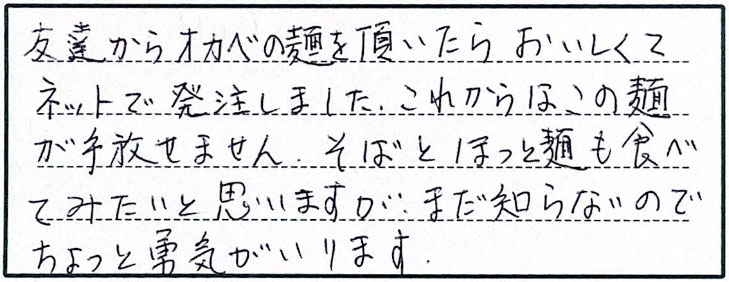 友達からオカベの麺を頂いたら おいしくて
ネットで発注しました.これからはこの麺
が手放せません.そばとほっと麺も食べ
てみたいと思いますが、まだ知らないので
ちょっと勇気がいります.